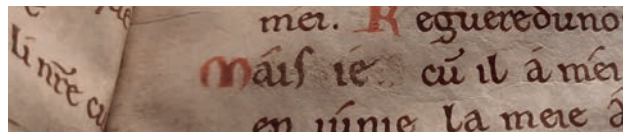 li nr̃e cu
mei. Reguereduno
Mais ie cū il a mei
en iunie la meie a